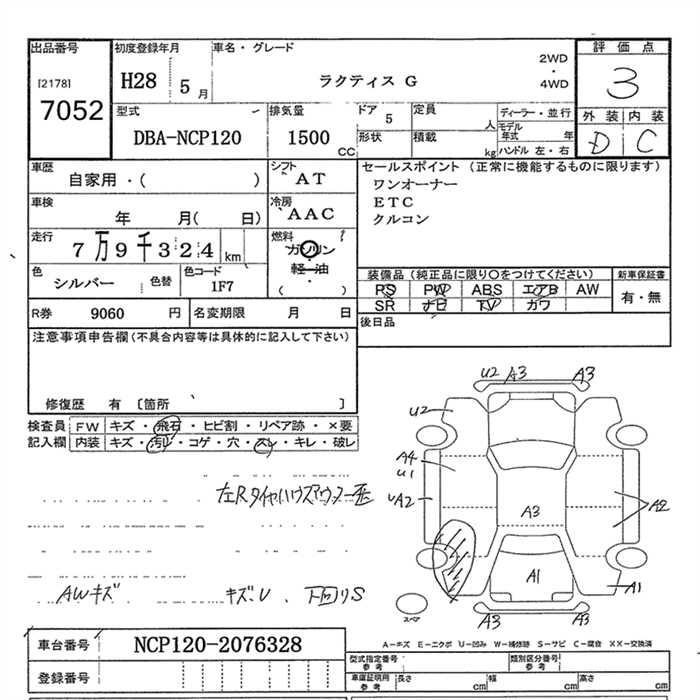 出品番号 初度登録年月 車名・グレード 評価点
[2178] 7052 H28 5月 ラクティス G 2WD・4WD 3
外装 内装
D C
型式 DBA-NCP120 排気量 1500 CC ドア 5 定員 人 ディーラー・並行
形状 積載 kg モデル年式 年
ハンドル 左・右
車歴 自家用・( ) シフト AT
セールスポイント (正常に機能するものに限ります)
ワンオーナー
ETC
クルコン
車検 年 月( 日) 冷房 AAC
走行 7万9千324 km 燃料 ガソリン
軽油
( )
色 シルバー 色替 色コード 1F7
装備品 (純正品に限り○をつけてください) 新車保証書
PS PW ABS エアB AW 有・無
SR ナビ TV カワ
R券 9060 円 名変期限 月 日
後日品
注意事項申告欄 (不具合内容等は具体的に記入して下さい)
修復歴 有 [箇所 ]
検査員 FW キズ・飛石・ヒビ割・リペア跡・×要
記入欄 内装 キズ・汚レ・コゲ・穴・スレ・キレ・破レ
左Rタイヤハウス
AWキズ キズ、U、下回りS
U2 A3 A3
U2
A4
U1
UA2 A2
A3
A1 A1
A3 A3
スペア
A-キズ E-エクボ U-凹み W-補修跡 S-サビ C-腐食 XX-交換済
車台番号 NCP120-2076328
登録番号
型式指定番号 参考 類別区分番号 参考
車庫証明用 参考 長さ cm 幅 cm 高さ cm